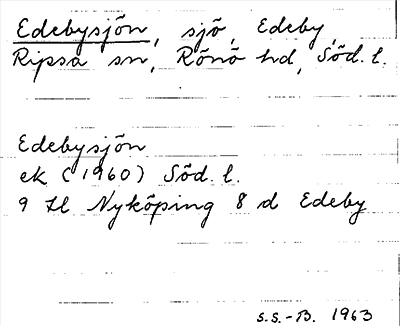 Edebysjön, sjö, Edeby,
Ripsa sn, Rönö hd, Söd. l.
Edebysjön
ek (1960) Söd. l.
9 H Nyköping 8 d Edeby
S.S.-B. 1963